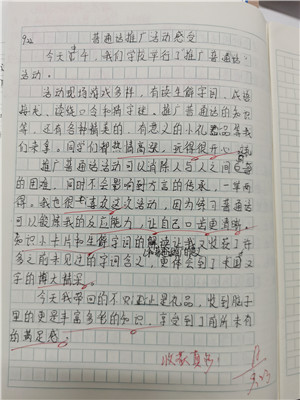 普通话推广活动感受
今天中午，我们学校举行了推广普通话
活动。
活动现场游戏多样，有读生解字词、成语
接龙、读绕口令和猜字谜、推广普通话的知识
等，还有各种精美的、有意义的小礼品等我
们去拿，同学们都热情高涨，玩得很开心。
推广普通话活动可以消除人与人之间交流
的困难，同时不会影响到方言的传承，一举两
得。我也很喜欢这次活动，因为练习普通话
可以锻炼我的反应能力，让自己口齿更清晰。
知识小卡片和生解字词的解读让我又收获了许
多之前未见过的字词含义，更体会到了
字的博大精深。
今天我带回的不只是礼品，收到脑子
里的更是丰富多彩的知识，享受到了前所未有
的满足感。
收获真多